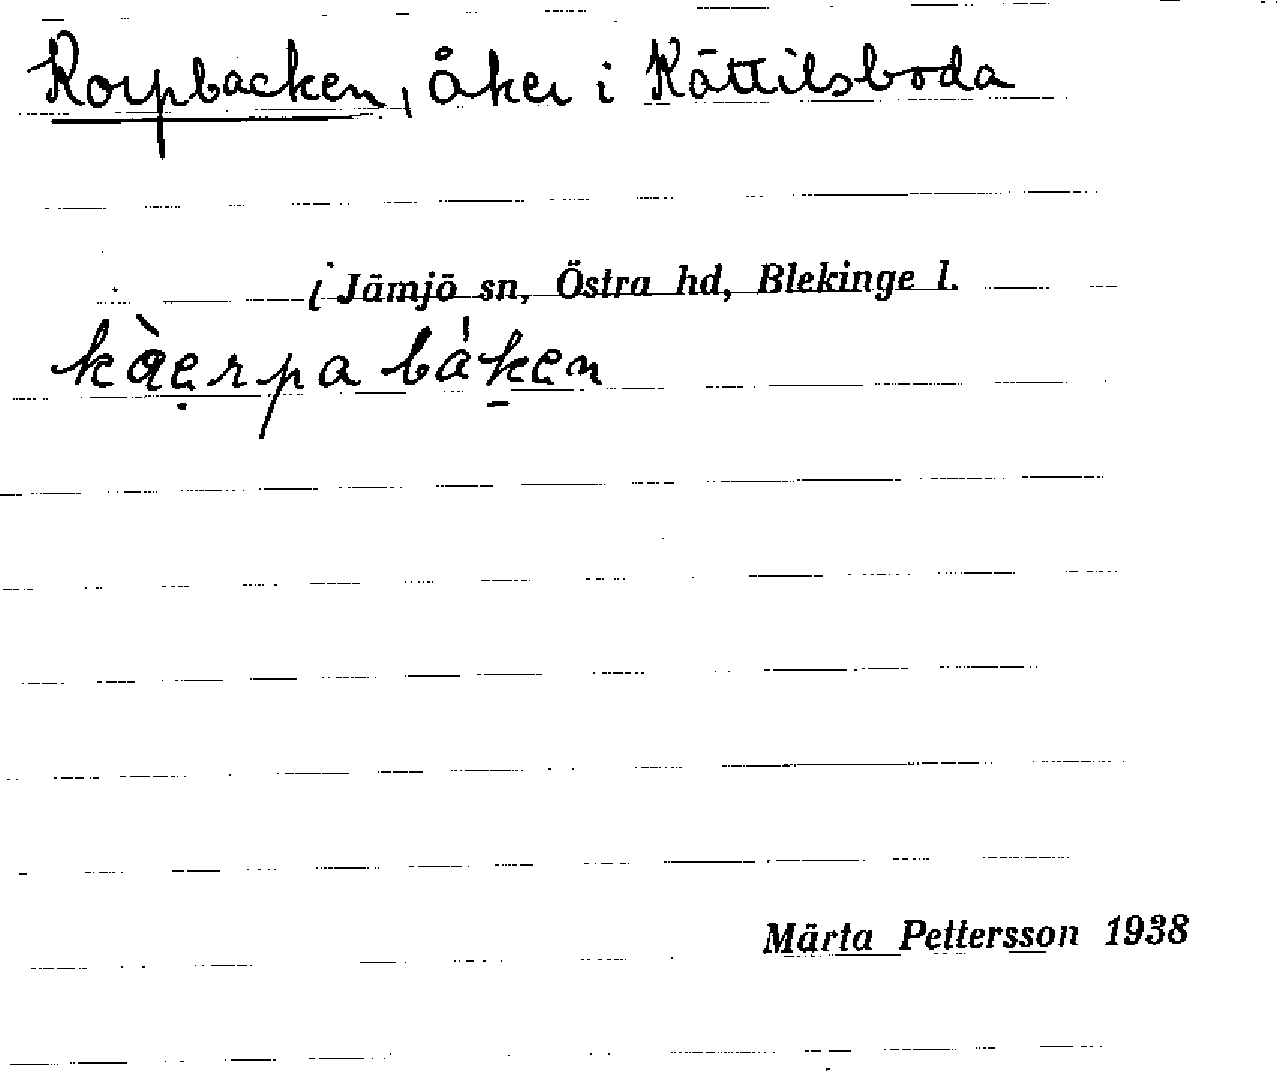 Korpbacken, åker i Kättilsboda
i Jämjö sn, Östra hd, Blekinge l.
kàerpa báken
Märta Pettersson 1938